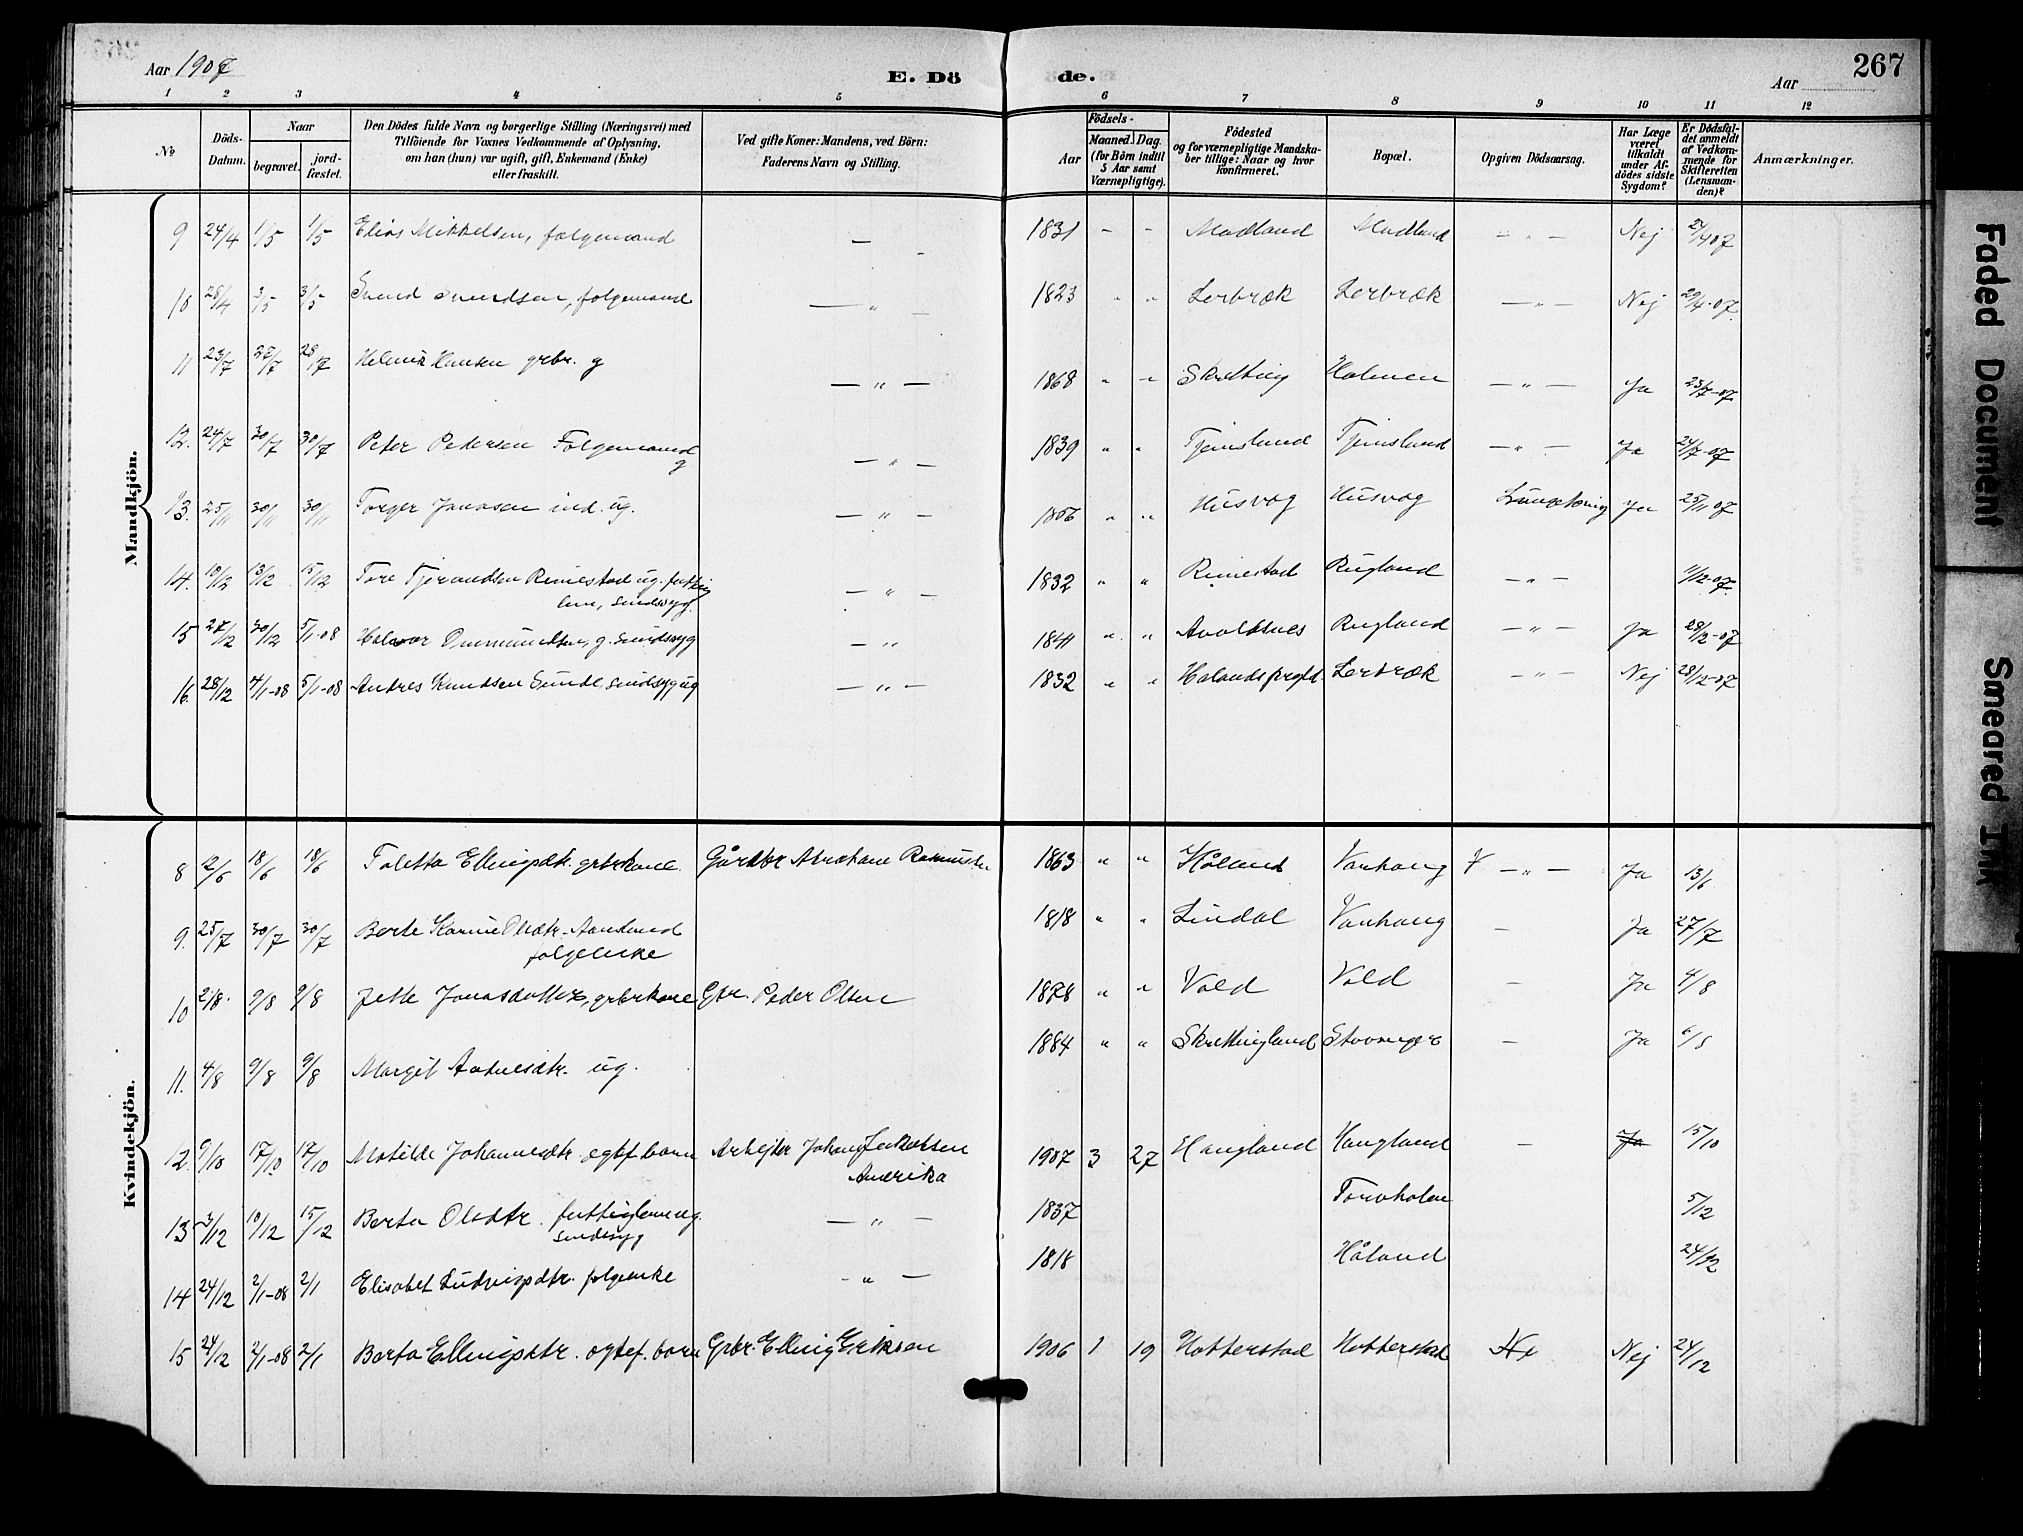 267
Aar 1907
E. Dö de.
Aar
1 2 3 4 5 6 7 8 9 10 11 12
No
Döds-Datum.
Naar
begravet.
jord-fæstet.
Den Dödes fulde Navn og borgerlige Stilling (Næringsvei) med
Tilföiende for Voxnes Vedkommende af Oplysning,
om han (hun) var ugift, gift, Enkemand (Enke)
eller fraskilt.
Ved gifte Koner: Mandens, ved Börn:
Faderens Navn og Stilling.
Födsels-
Aar
Maaned. Dag.
(for Börn indtil
5 Aar samt
Værnepligtige).
Födested
og for værnepligtige Mandska-
ber tillige: Naar og hvor
konfirmeret.
Bopæl.
Opgiven Dödsaarsag.
Har Læge
været
tilkaldt
under Af-
dödes sidste
Sygdom?
Er Dödsfal-
det anmeldt
af Vedkom-
mende for
Skifteretten
(Lensman-
den)?
Anmærkninger.
Mandkjön.
9 24/4 1/5 1/5 Elias Mikkelsen, følgemand — 1831 - - Madland Madland — " — Nej 27/4 07
10 28/4 3/5 3/5 Svend Svendsen, følgemand — " — 1823 " " Lerbræk Lerbræk — " — Nej 29/4-07.
11 23/7 28/7 Hansen grbr. g — " — 1868 " " Skretting Holmen — " — Ja 23/7-07.
12. 24/7 30/7 30/7 Peter Pedersen Følgemand
g — " — 1839 " " Tjemsland Tjemsland — " — Ja 24/7-07
13. 25/11 30/11 30/11 Torger Jonasen ind. ug. — " — 1856 " " Husvog Husvog Lungetæring Ja 25/11 07
14. 10/12 13/12 15/12 Tore Tjerandsen Rimestad ug. fattig
lem, sindssyg. — " — 1832 " " Rimestad Rugland — " — 11/12-07.
15 27/12 30/12 5/1-08 Halvor g. sindssyg — " 1841 " " Avaldsnes Rugland — " — Ja 28/12-07
16. 28/12 4/1-08 5/1-08 Andres Knudsen Sunde sindsyg ug — " — 1832 " " Lerbræk — " — Nej 28/12-07
Kvindekjön.
8 12/6 18/6 18/6 Toletta Ellingsdtr. grbrkone Gårdbr Abraham 1863 " " Håland Varhaug — " — Ja 13/6
9. 25/7 30/7 30/7 Berte Karine Olsdtr.
følgeenke 1818 " " Lindal Varhaug — Ja 27/7
10 2/8. 9/8 9/8 Jette Jonasdatter, grbrkone Gbr. Peder Olsen 1878 " " Vold Vold — Ja 4/8
11. 4/8 9/8 9/8 Margit ug. 1884 " " Skrettingland Stavanger — Ja 6/8
12. 9/10 17/10 17/10 Matilde Johannesdtr. egtf barn Arbejder Johan Jakobsen
Amerika 1907 3 27 Haugland Haugland — Ja 15/10
13 3/12 10/12 15/12 Berta Olsdtr. fattiglem ug.
sindssyg — " — 1837 Torvholen 5/12
14 24/12 2/1-08 2/1 Elisabet Ludvigsdtr. følgenke - " — 1818 Håland 24/12
15 24/12 2/1-08 2/1 Berta Ellingsdtr. egtef. barn Grbr. Elling Eriksen 1906 1 19 Notterstad Notterstad Nej 24/12
Faded Document
Smeared Ink